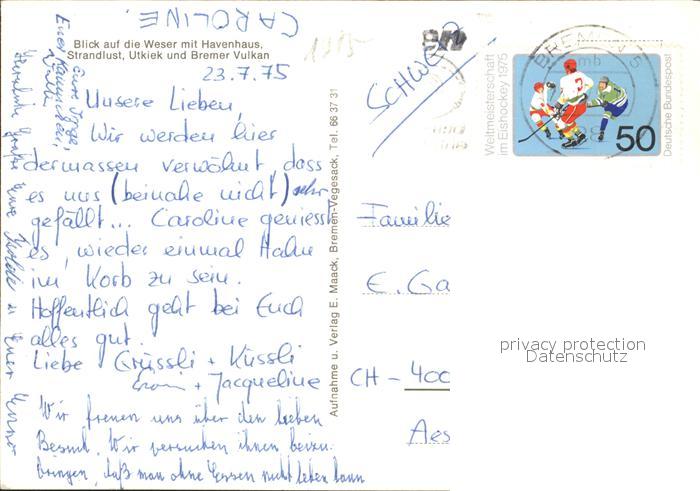 CAROLINE.
Blick auf die Weser mit Havenhaus,
Strandlust, Utkiek und Bremer Vulkan
23.7.75
Unsere Lieben,
Wir werden hier
dermassen verwöhnt, dass
es uns (beinahe nicht) sehr
gefällt... Caroline geniesst
es, wieder einmal Hahn
im Korb zu sein.
Hoffentlich geht bei Euch
alles gut.
Liebe Grüssli + Küssli
+ Jacqueline
Wir freuen uns über den lieben
Besuch. Wir versuchen ihnen beizu-
bringen, daß man ohne Essen nicht leben kann
Herzliche Grüße Eure
Euer
Aufnahme u. Verlag E. Maack, Bremen-Vegesack, Tel. 66 37 31
1975
SCHWEIZ
BREMEN 5
Weltmeisterschaft
im Eishockey 1975
50
Deutsche Bundespost
Familie
E. Ga
CH - 400
Aes
privacy protection
Datenschutz